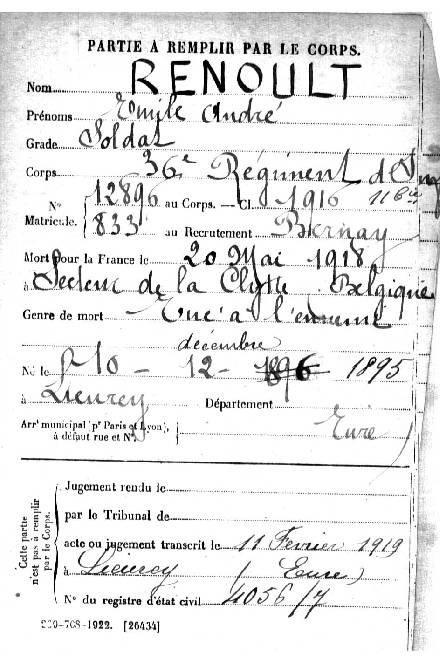 PARTIE À REMPLIR PAR LE CORPS.
Nom RENOULT
Prénoms Emile André
Grade Soldat
Corps 36e Régiment d'Inf
N° 12896 au Corps. — Cl. 1916 11 Cie
Matricule. 833 au Recrutement Bernay
Mort pour la France le 20 Mai 1918
à Secteur de la Clytte Belgique
Genre de mort Tué à l'ennemi
décembre
Né le 10 - 12 - 1896 1895
à Lieurey Département Eure
Arrt municipal (pr Paris et Lyon),
à défaut rue et N°.
Cette partie
n'est pas à remplir
par le Corps.
Jugement rendu le
par le Tribunal de
acte ou jugement transcrit le 11 Février 1919
à Lieurey (Eure)
N° du registre d'état civil 4056/7
-708-1922. [26434]